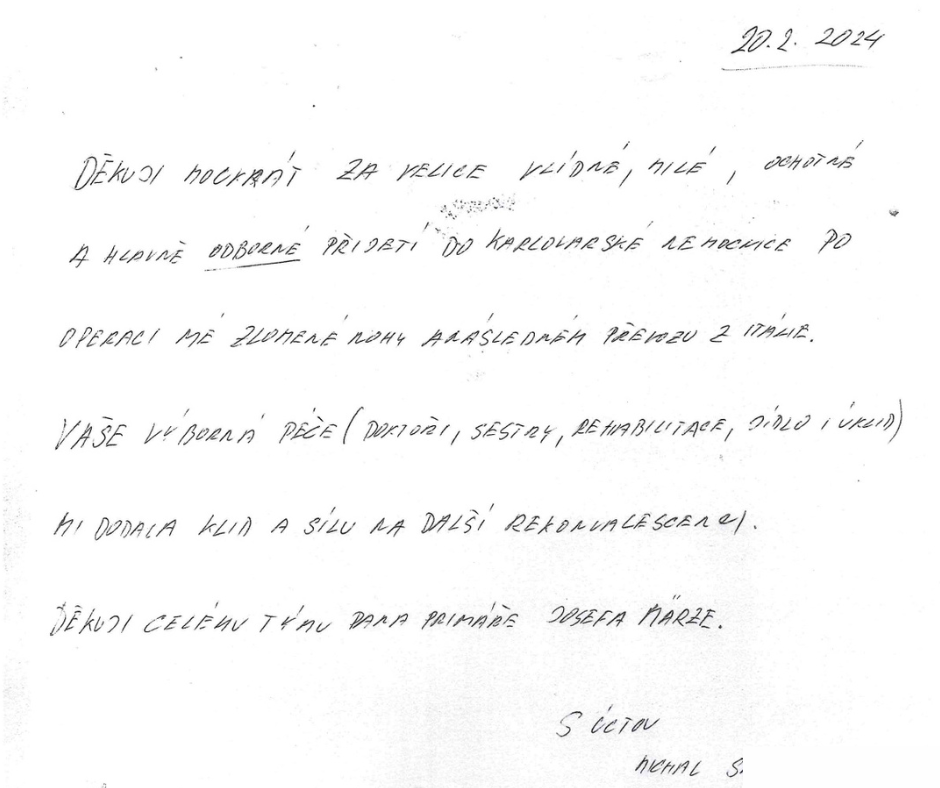 20.2. 2024
DĚKUJI MOCKRÁT ZA VELICE VLÍDNÉ, MILÉ, OCHOTNÉ
A HLAVNĚ ODBORNÉ PŘIJETÍ DO KARLOVARSKÉ NEMOCNICE PO
OPERACI MÉ ZLOMENÉ NOHY A NÁSLEDNÉM PŘEVOZU Z ITÁLIE.
VAŠE VÝBORNÁ PÉČE (DOKTOŘI, SESTRY, REHABILITACE, JÍDLO I ÚKLID)
MI DODALA KLID A SÍLU NA DALŠÍ REKONVALESCENCI.
DĚKUJI CELÉMU TÝMU PANA PRIMÁŘE JOSEFA MÄRZE.
S ÚCTOU
MICHAL S.